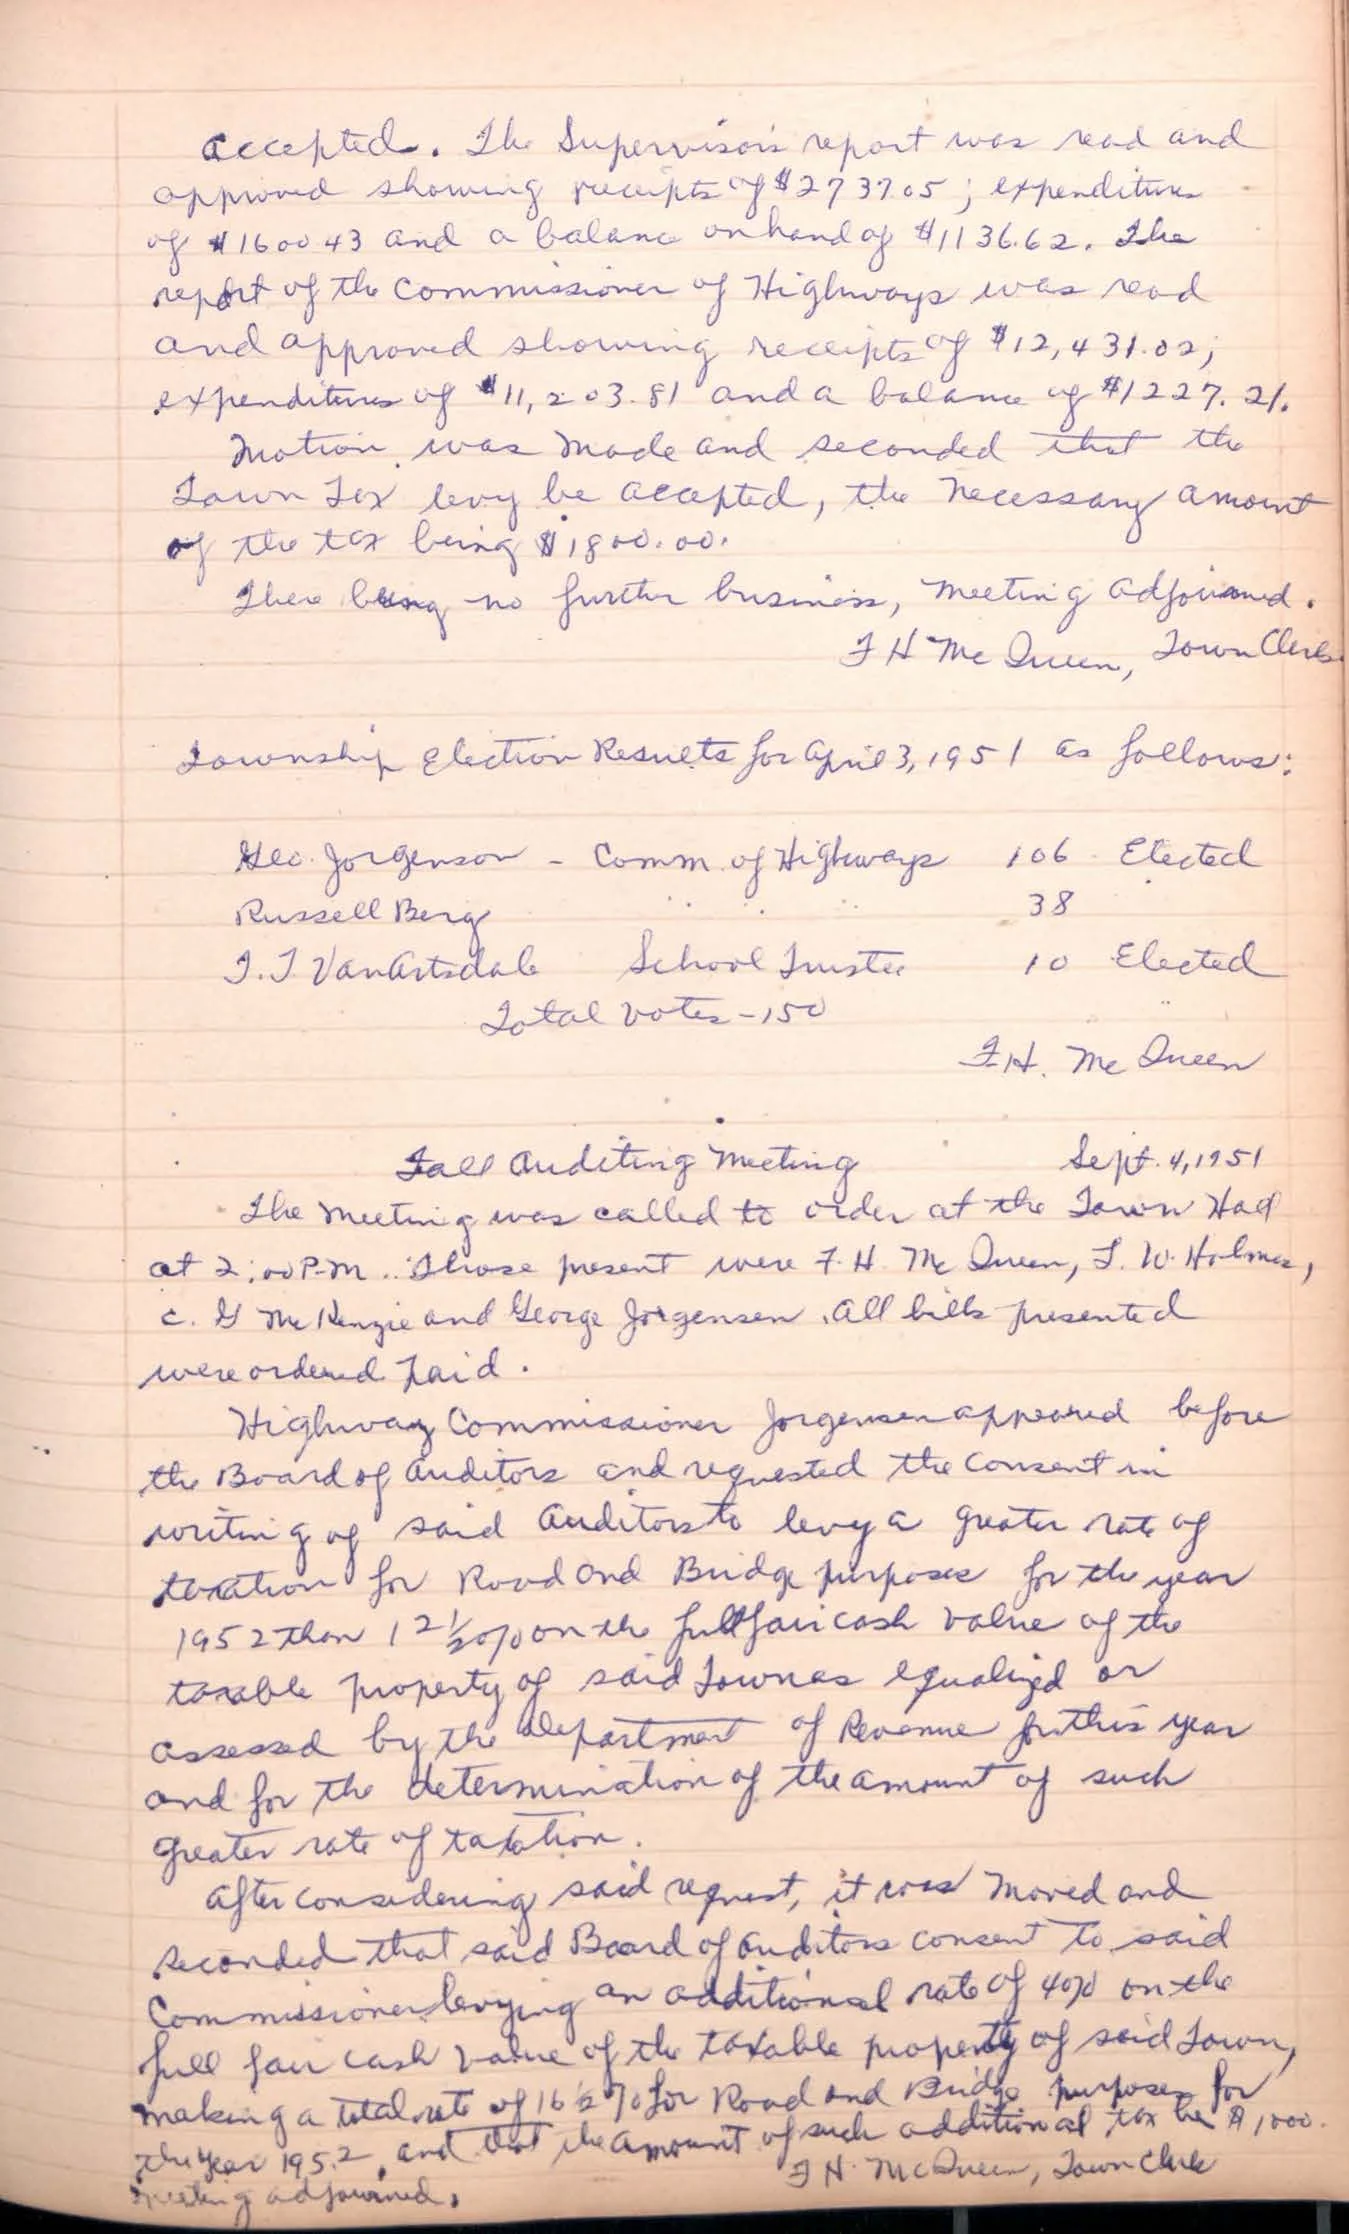 accepted. The Supervisor's report was read and
approved showing receipts of $2737.05; expenditures
of $1600.43 and a balance on hand of $1136.62. The
report of the Commissioner of Highways was read
and approved showing receipts of $12,431.02;
expenditures of $11,203.81 and a balance of $1227.21.
Motion was made and seconded that the
Town Tax levy be accepted, the necessary amount
of the tax being $1800.00.
There being no further business, meeting adjourned.
F H McQueen, Town Clerk
Township Election Results for April 3, 1951 as follows:
Geo. Jorgenson - Comm. of Highways 106 Elected
Russell Berg " " " 38
T. T. VanArtsdale School Trustee 10 Elected
Total Votes - 150
F. H. McQueen
Fall Auditing Meeting Sept. 4, 1951
The meeting was called to order at the Town Hall
at 2:00 P.M. Those present were F. H. McQueen, L. W. Holmes,
C. G McKenzie and George Jorgensen. All bills presented
were ordered paid.
Highway Commissioner Jorgensen appeared before
the Board of Auditors and requested the consent in
writing of said Auditors to levy a greater rate of
taxation for Road and Bridge purposes for the year
1952 than 12 1/2 % on the full fair cash value of the
taxable property of said Town as equalized or
assessed by the Department of Revenue for this year
and for the determination of the amount of such
greater rate of taxation.
After considering said request, it was moved and
seconded that said Board of Auditors consent to said
Commissioner levying an additional rate of 4% on the
full fair cash value of the taxable property of said Town,
making a total rate of 16 1/2 % for Road and Bridge purposes for
the year 1952 and that the amount of such additional tax be $1000.
F H. McQueen, Town Clerk
Meeting adjourned.